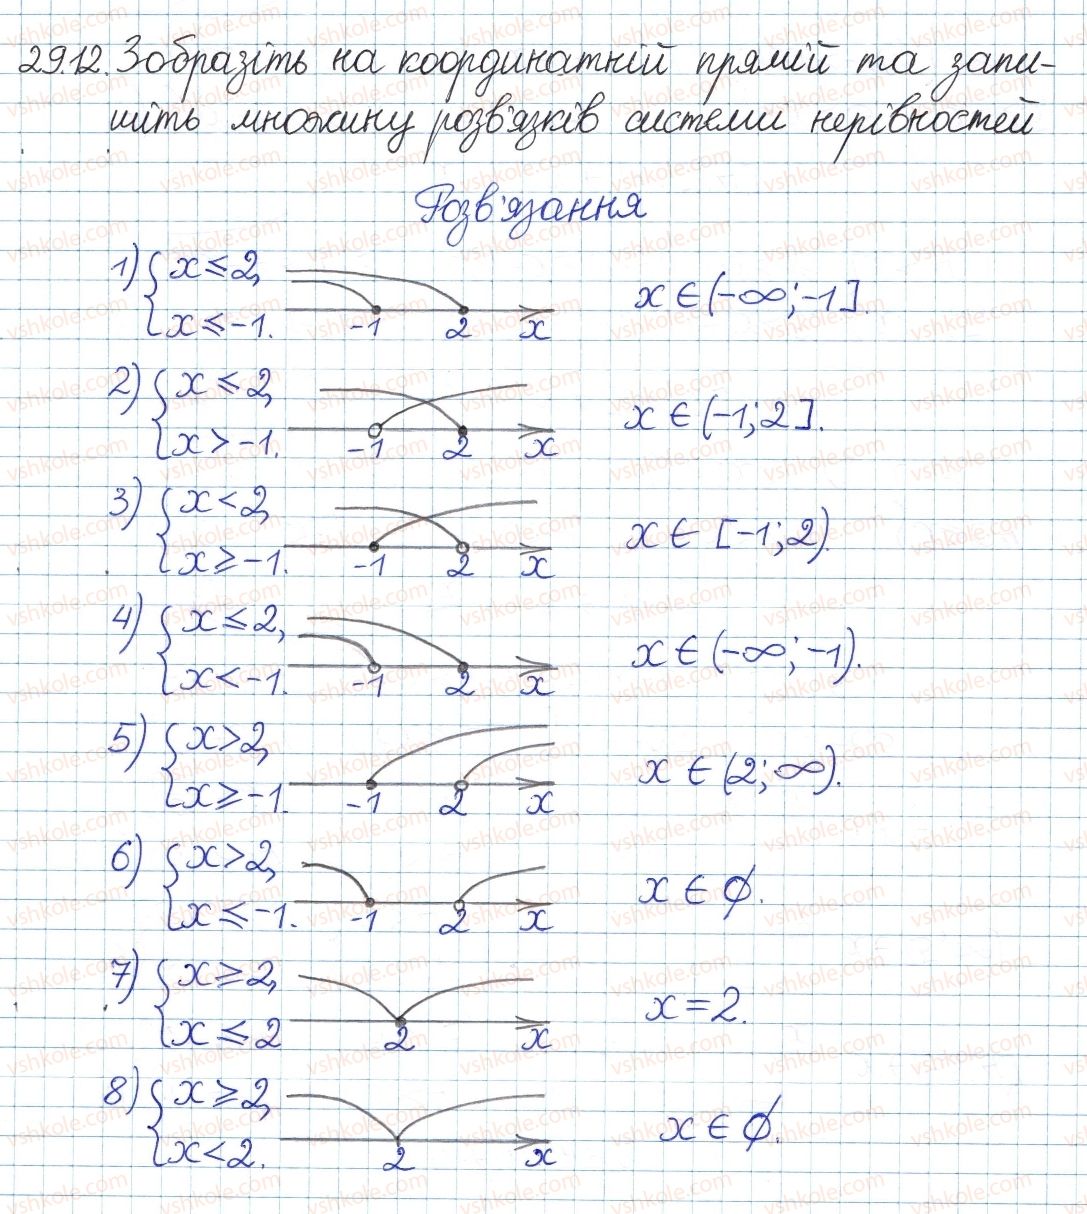 29.12. Зобразіть на координатній прямій та запи-
шіть множину розв'язків системи нерівностей
Розв'язання
1) { x ≤ 2, x ≤ -1. -1 2 x x ∈ (-∞; -1].
2) { x ≤ 2, x > -1. -1 2 x x ∈ (-1; 2].
3) { x < 2, x ≥ -1. -1 2 x x ∈ [-1; 2).
4) { x ≤ 2, x < -1. -1 2 x x ∈ (-∞; -1).
5) { x > 2, x ≥ -1. -1 2 x x ∈ (2; ∞).
6) { x > 2, x ≤ -1. -1 2 x x ∈ ∅.
7) { x ≥ 2, x ≤ 2 2 x x = 2.
8) { x ≥ 2, x < 2. 2 x x ∈ ∅.
vshkole.com